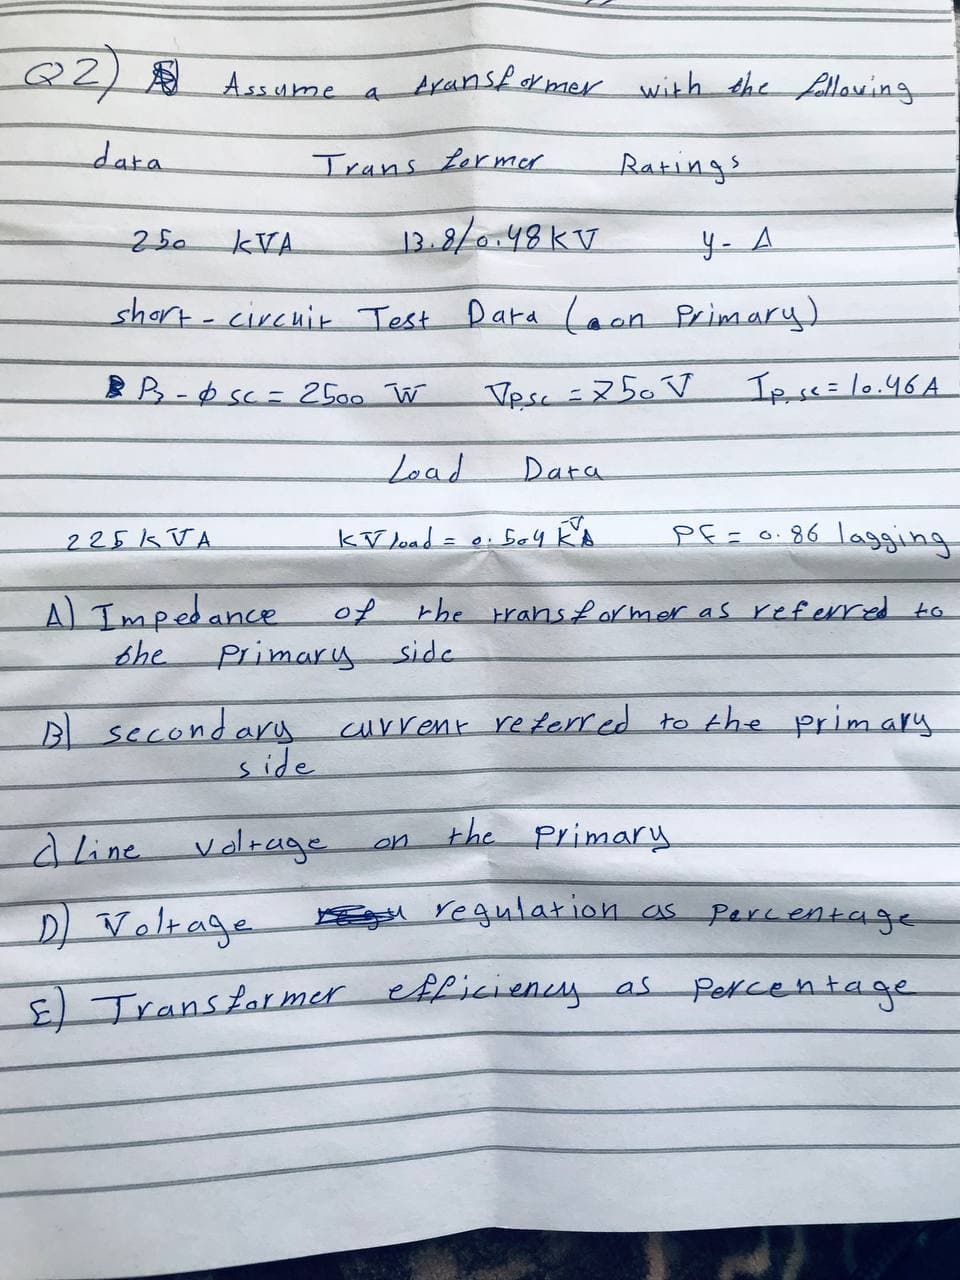 Q2) Assume a transformer with the following
data Transformer Ratings
250 kVA 13.8/0.48 KV y - Δ
short - circuit Test Data (on Primary)
P3 - ϕ sc = 2500 W Vp,sc = 750 V Ip,sc = 10.46 A
Load Data
225 kVA KV load = 0.504 KV PF = 0.86 lagging
A) Impedance of the transformer as referred to
the primary side
B) secondary current referred to the primary
side
C) Line voltage on the primary
D) Voltage regulation as percentage
E) Transformer efficiency as percentage